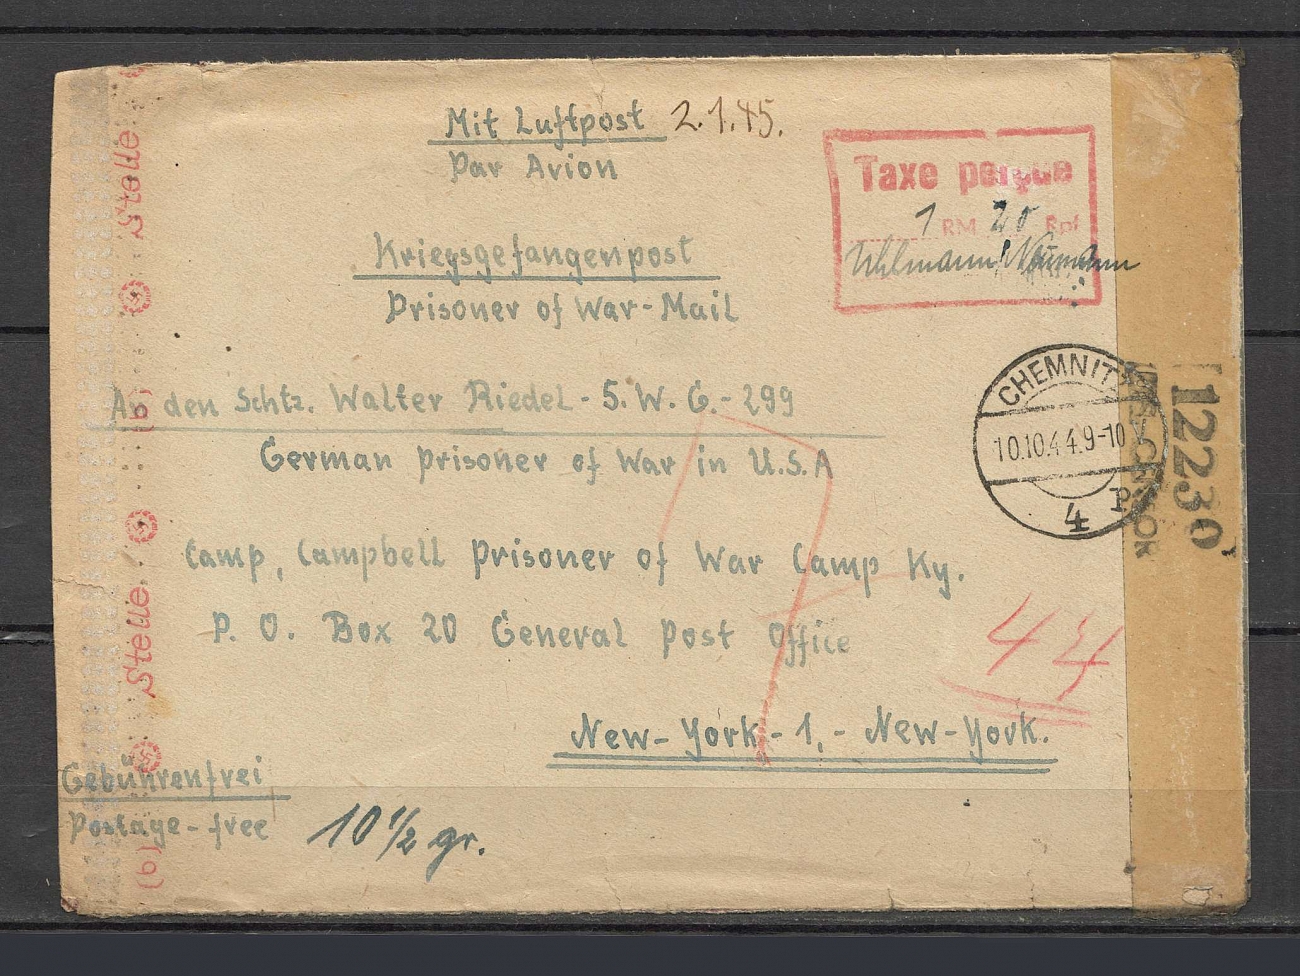 Mit Luftpost 2.1.45.
Par Avion
Taxe perçue
1 RM 20 Rpf
Uhlmann Naumann
Kriegsgefangenpost
Prisoner of War-Mail
An den Schtz. Walter Riedel - 5. W. G. - 299
German prisoner of War in U.S.A
CHEMNITZ
10.10.44.9-10
4 P
12230
Camp, Campbell Prisoner of War Camp Ky.
P. O. Box 20 General Post Office
44
New-York-1,- New-York.
Gebührenfrei
Postage-free
10 1/2 gr.
Stelle
(b)
Stelle
(b)